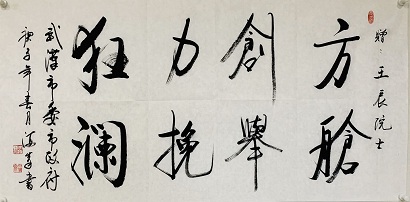 赠：王辰院士
方舱
創舉
力挽
狂澜
武漢市委市政府
庚子年春月